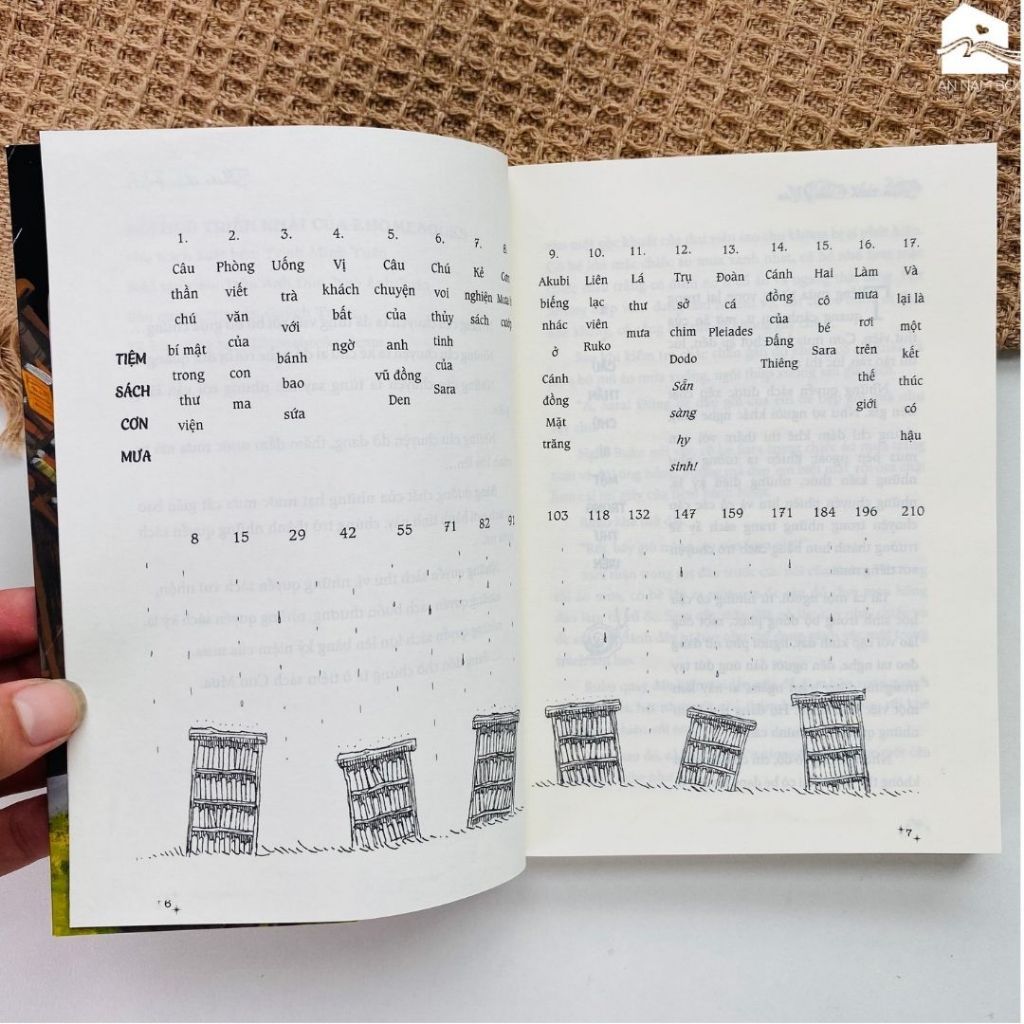 TIỆM SÁCH CƠN MƯA
1. Câu thần chú bí mật trong thư viện 8
2. Phòng viết văn của con ma 15
3. Uống trà với bánh bao sứa 29
4. Vị khách bất ngờ 42
5. Câu chuyện của anh vũ đồng Den 55
6. Chú voi thủy tinh của Sara 71
7. Kẻ nghiện sách 82
8. 91
9. Akubi biếng nhác ở Cánh đồng Mặt trăng 103
10. Liên lạc viên Ruko 118
11. Lá thư mưa 132
12. Trụ sở chim Dodo Sẵn sàng hy sinh! 147
13. Đoàn cá Pleiades 159
14. Cánh đồng của Đấng Thiêng 171
15. Hai cô bé Sara 184
16. Làm mưa rơi trên thế giới 196
17. Và lại là một kết thúc có hậu 210
6
7
AN NAM BO